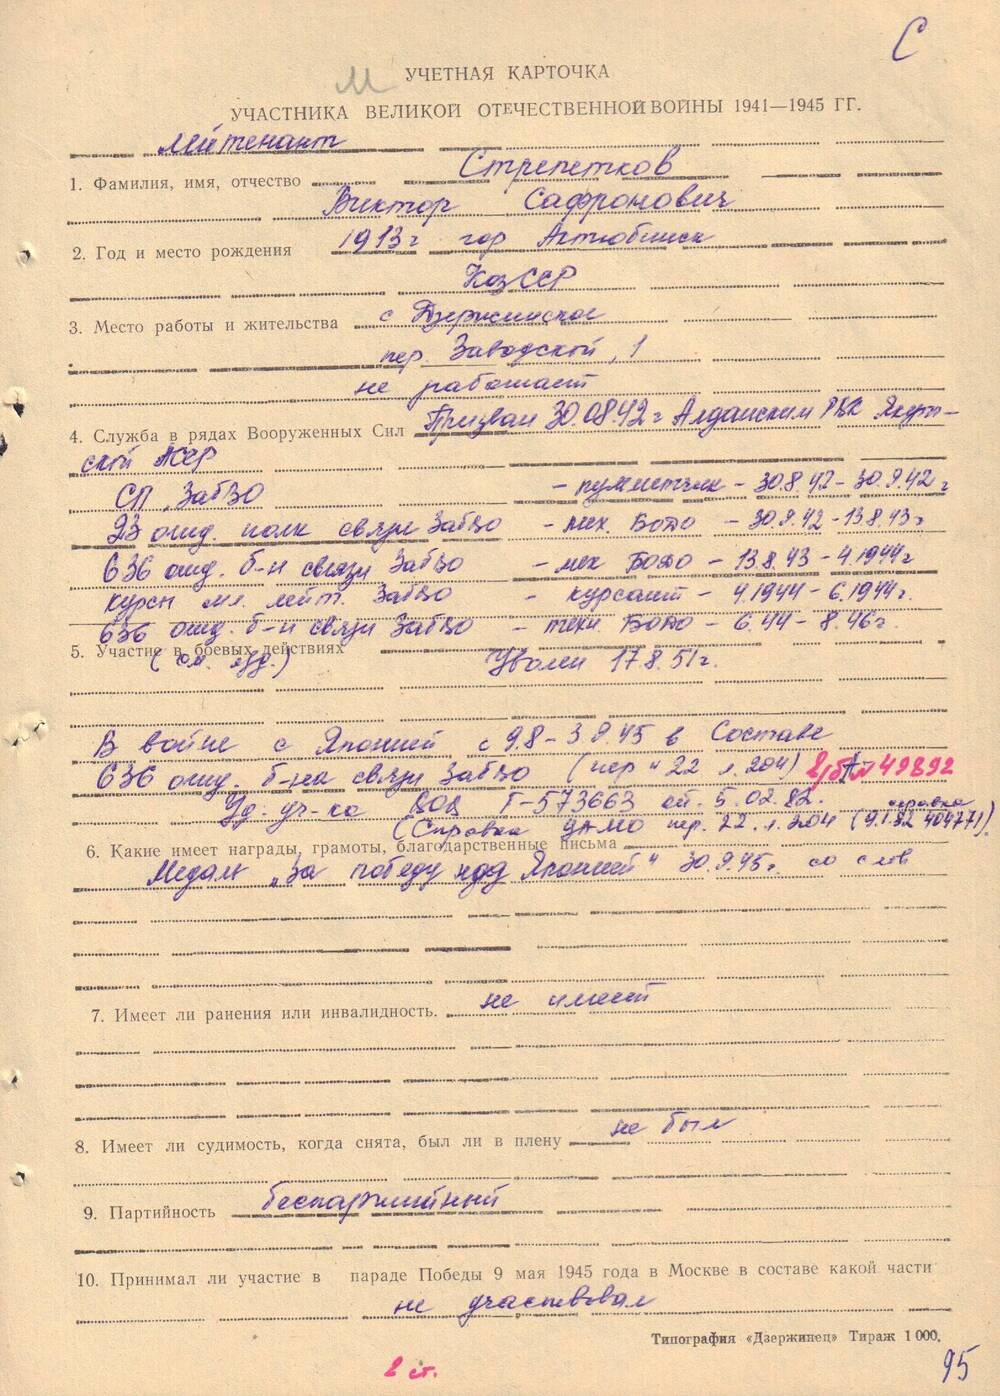 С
М
УЧЕТНАЯ КАРТОЧКА
УЧАСТНИКА ВЕЛИКОЙ ОТЕЧЕСТВЕННОЙ ВОЙНЫ 1941—1945 ГГ.
лейтенант
1. Фамилия, имя, отчество Стрепетков
Виктор Сафронович
2. Год и место рождения 1913 г гор Актюбинск
КазССР
3. Место работы и жительства с Дзержинское
пер. Заводской, 1
не работает
4. Служба в рядах Вооруженных Сил Призван 30.08.42 г Алданским РВК Якут-
ской АССР
СП, ЗабВО - пулеметчик - 30.8.42 - 30.9.42 г
93 отд. полк связи ЗабВО - мех. БОДО - 30.9.42 - 13.8.43 г
636 отд. б-н связи ЗабВО - мех БОДО - 13.8.43 - 4.1944 г
курсы мл. лейт. ЗабВО - курсант - 4.1944 - 6.1944 г.
636 отд. б-н связи ЗабВО - техн. БОДО - 6.44 - 8.46 г.
5. Участие в боевых действиях
Уволен 17.8.51 г.
В войне с Японией с 9.8 - 3.9.45 в составе
636 отд. б-на связи ЗабВО (пер " 22 л. 204) 49892
Уд. уч-ка ВОВ Г-573663 от 5.02.82.
справка
(Справка ЦАМО пер. 22 л. 204 (9.1.82 404771).
6. Какие имеет награды, грамоты, благодарственные письма
Медаль "За победу над Японией" 30.9.45 г. со слов
7. Имеет ли ранения или инвалидность. не имеет
8. Имеет ли судимость, когда снята, был ли в плену не был
9. Партийность беспартийный
10. Принимал ли участие в параде Победы 9 мая 1945 года в Москве в составе какой части
не участвовал
Типография «Дзержинец» Тираж 1 000.
2 ст.
95